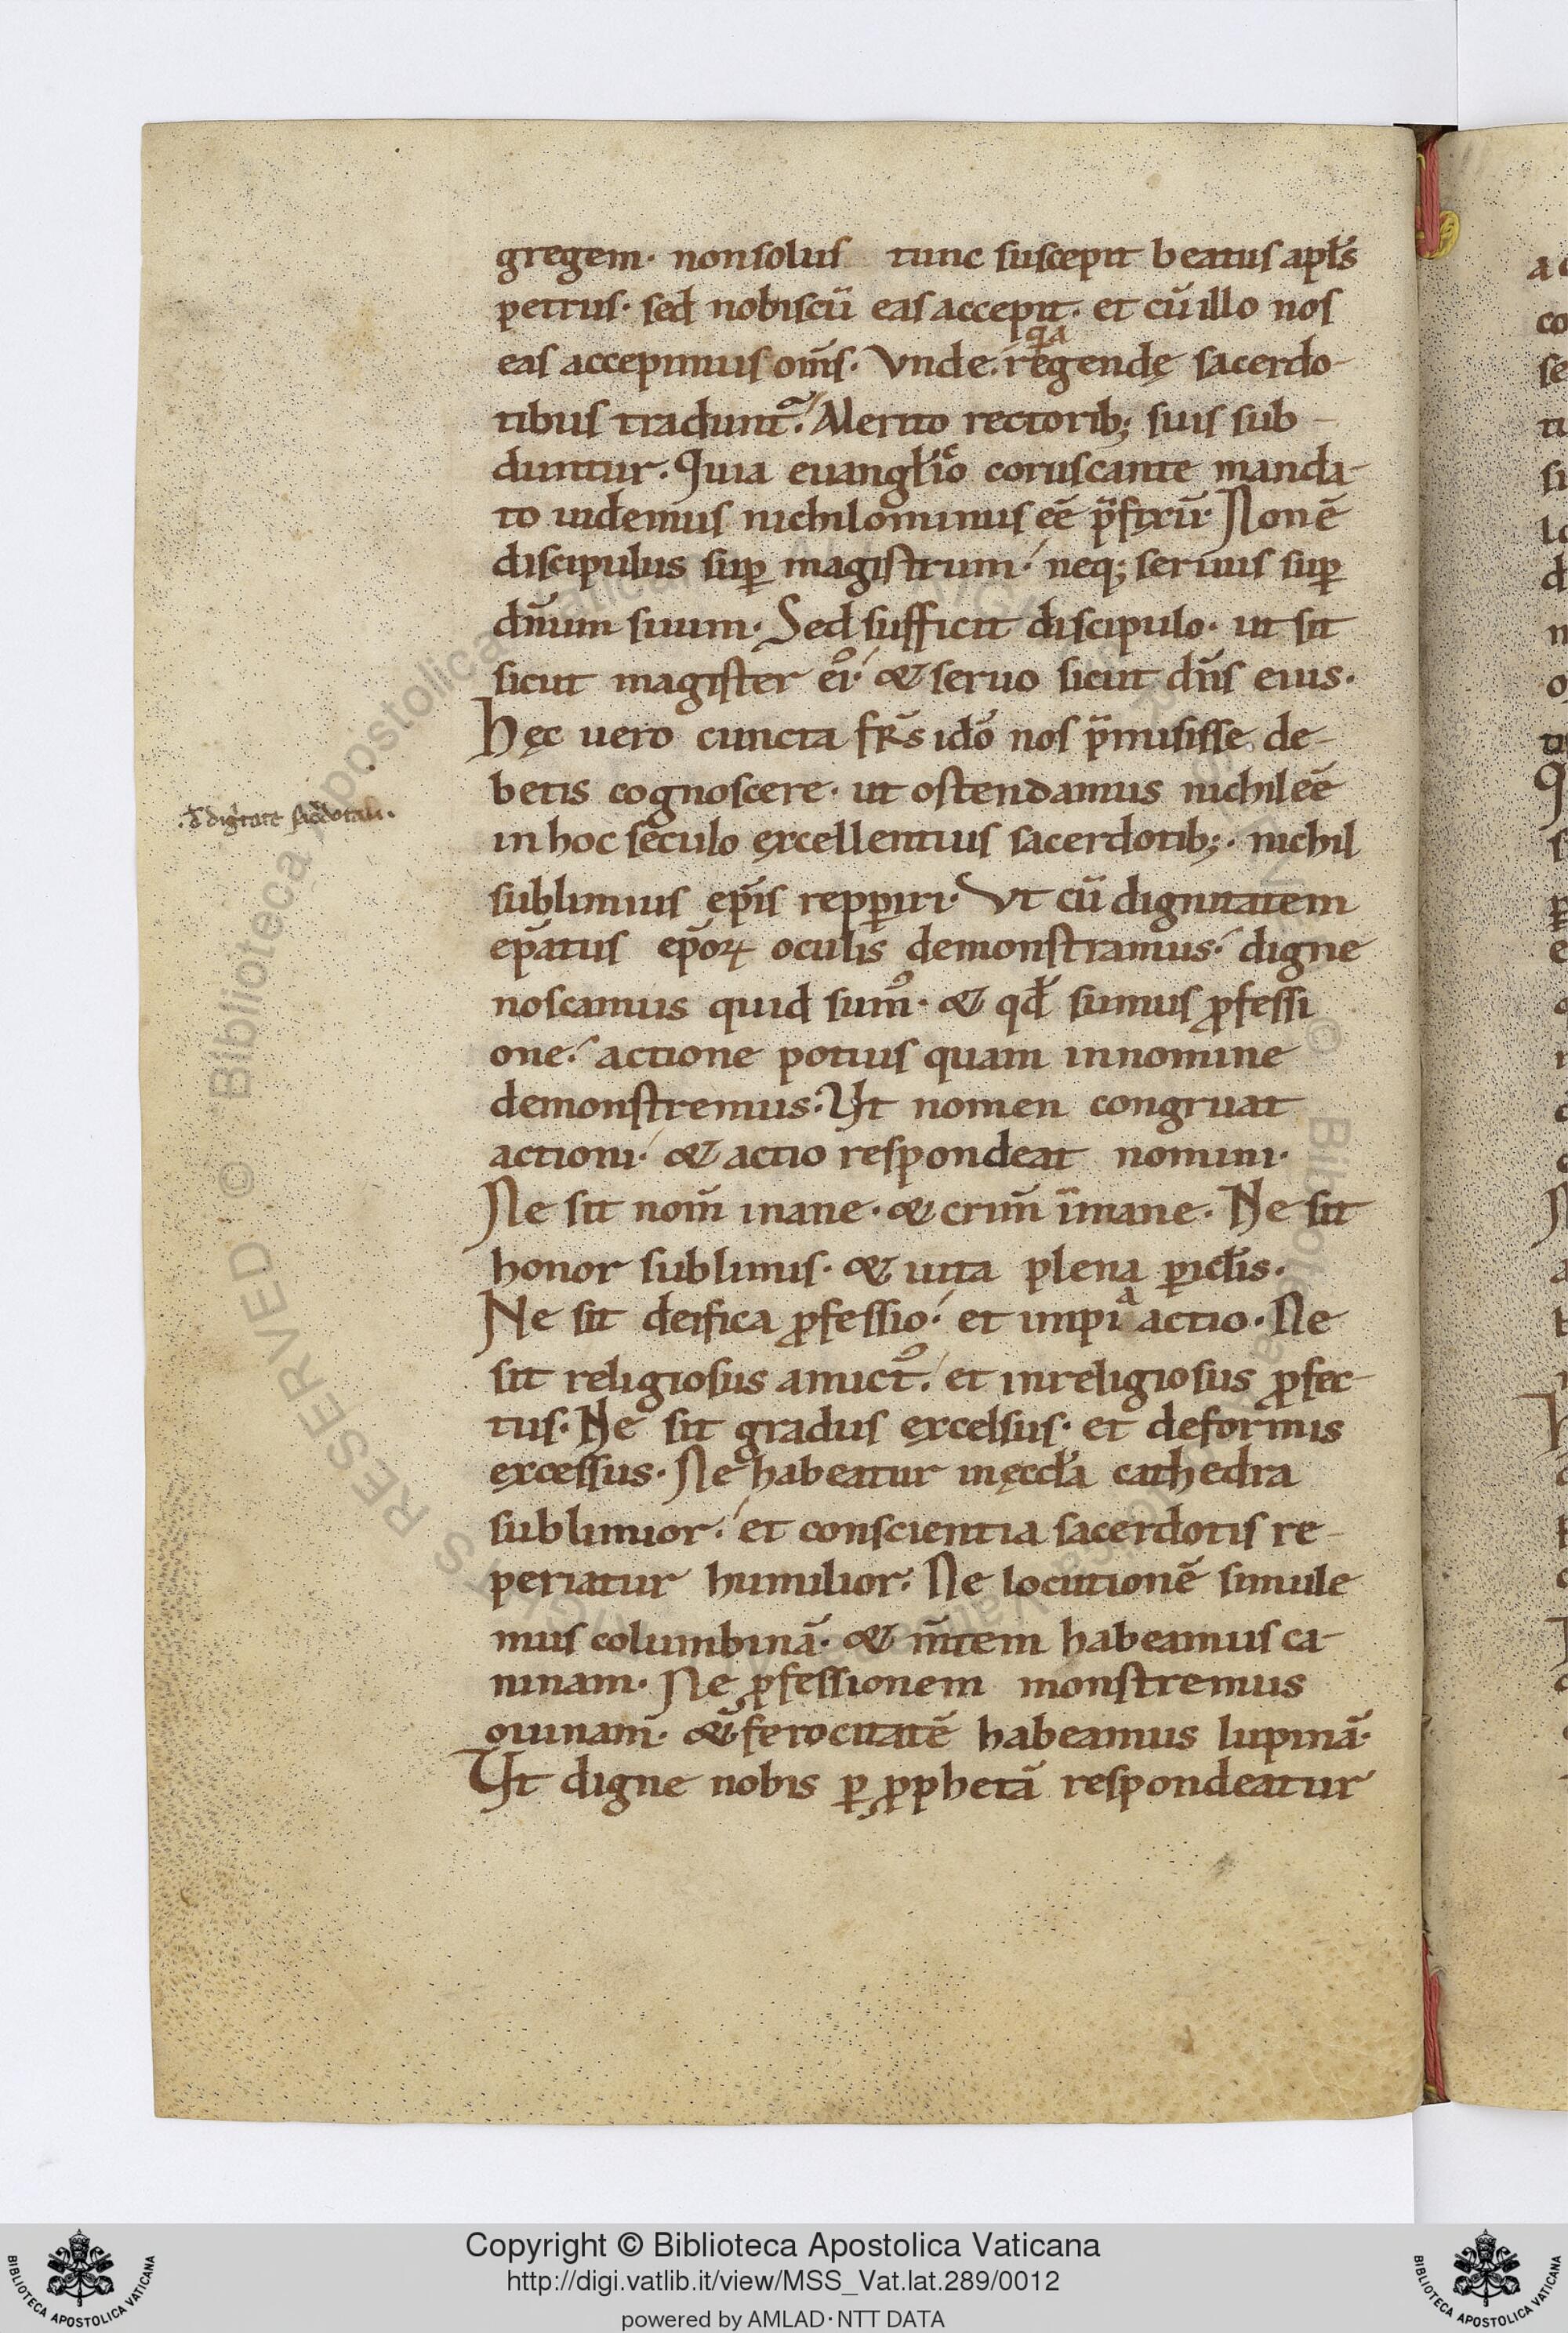 gregem· non solus tunc suscepit beatus apl̅s
petrus· sed nobiscū eas accepit· et cū illo nos
eas accepimus om̅s· Vnde· regendę sacerdo-
q̅a
tibus tradunt᷑· Merito rectorib; suis sub-
duntur· Quia euangl̅ico coruscante manda-
to uidemus nichilominus eē p̅fixū· Non ē
discipulus sup̱ magistrum· neq; seruus sup̱
dn̅um suum· Sed sufficit discipulo· ut sit
sicut magister ei᷒· & seruo sicut dn̅s eius·
Hęc uero cuncta fr̅s ido̅ nos p̅misisse de-
betis cognoscere· ut ostendamus nichil eē
in hoc sęculo excellentius sacerdotib;· nichil
.d̅ dignitate sac̅dotali.
sublimius ep̅is repp̱iri· Vt cū dignitatem
ep̅atus ep̅oꝝ oculis demonstramus· digne
noscamus quid sum᷒· & qd̅ sumus ꝓfessi
one· actione potius quam in nomine
demonstremus· Vt nomen congruat
actioni· & actio respondeat nomini·
Ne sit nom̅ inane· & crim̅ i̅mane· Ne sit
honor sublimis· & uita plena ꝑicl̅is·
Ne sit deifica ꝓfessio· et impia actio· Ne
sit religiosus amict᷒· et inreligiosus ꝓfec-
tus· Ne sit gradus excelsus· et deformis
excessus· Ne habeatur in ęccl̅a cathedra
sublimior· et conscientia sacerdotis re-
periatur humilior· Ne locutionē simule
mus columbinā· & m̅tem habeamus ca-
ninam· Ne ꝓfessionem monstremus
ouinam· & ferocitatē habeamus lupinā·
Vt digne nobis ꝑ ꝓphetā respondeatur
Copyright © Biblioteca Apostolica Vaticana
http://digi.vatlib.it/view/MSS_Vat.lat.289/0012
powered by AMLAD·NTT DATA
BIBLIOTECA APOSTOLICA VATICANA
BIBLIOTECA APOSTOLICA VATICANA